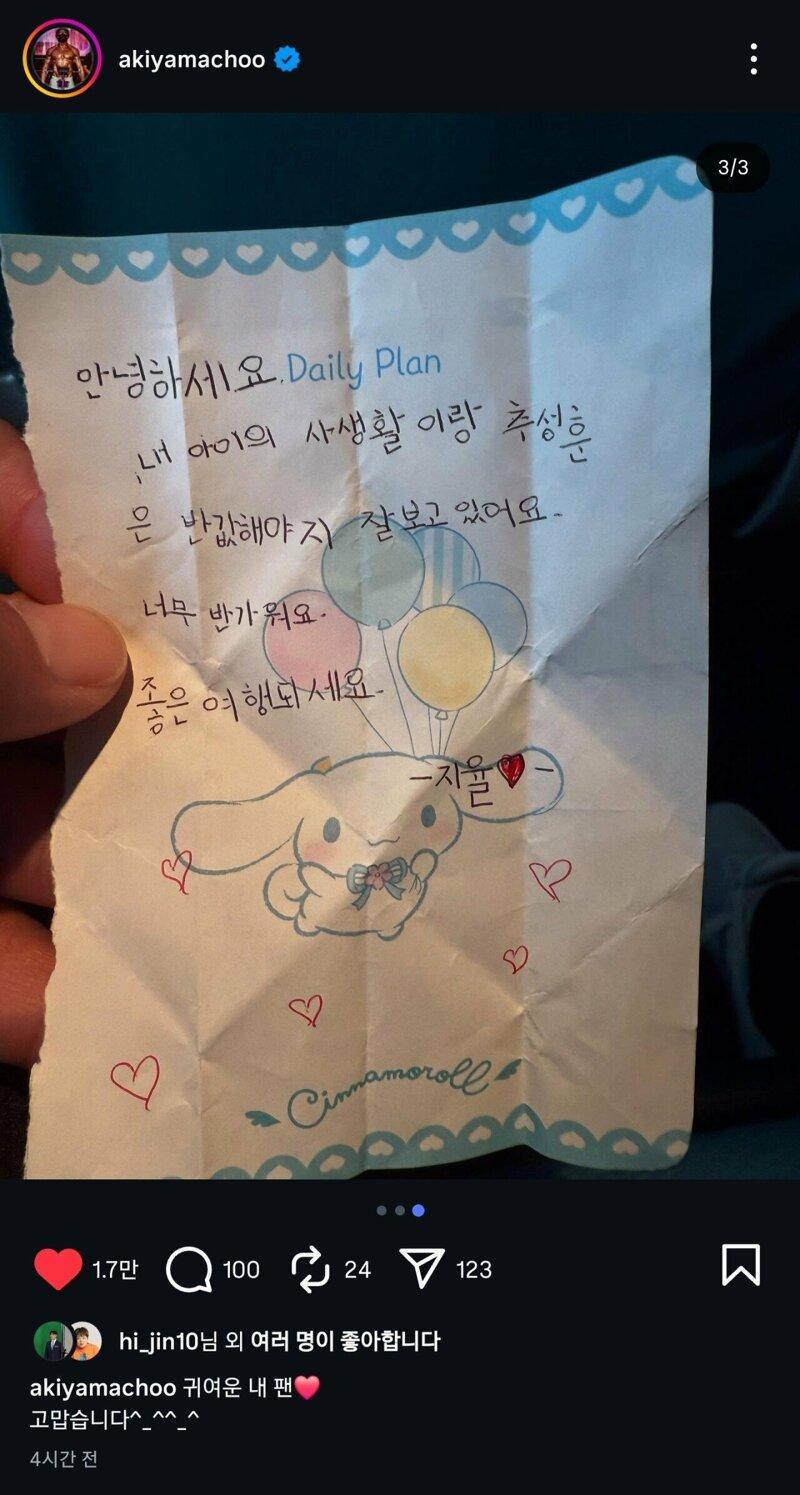 akiyamachoo
3/3
안녕하세요. Daily Plan
내 아이의 사생활 이랑 추성훈
은 반값해야지 잘보고있어요.
너무 반가워요.
좋은 여행되세요.
-지율♥-
Cinnamoroll
1.7만 100 24 123
hi_jin10님 외 여러 명이 좋아합니다
akiyamachoo 귀여운 내 팬❤️
고맙습니다^_^^_^
4시간 전